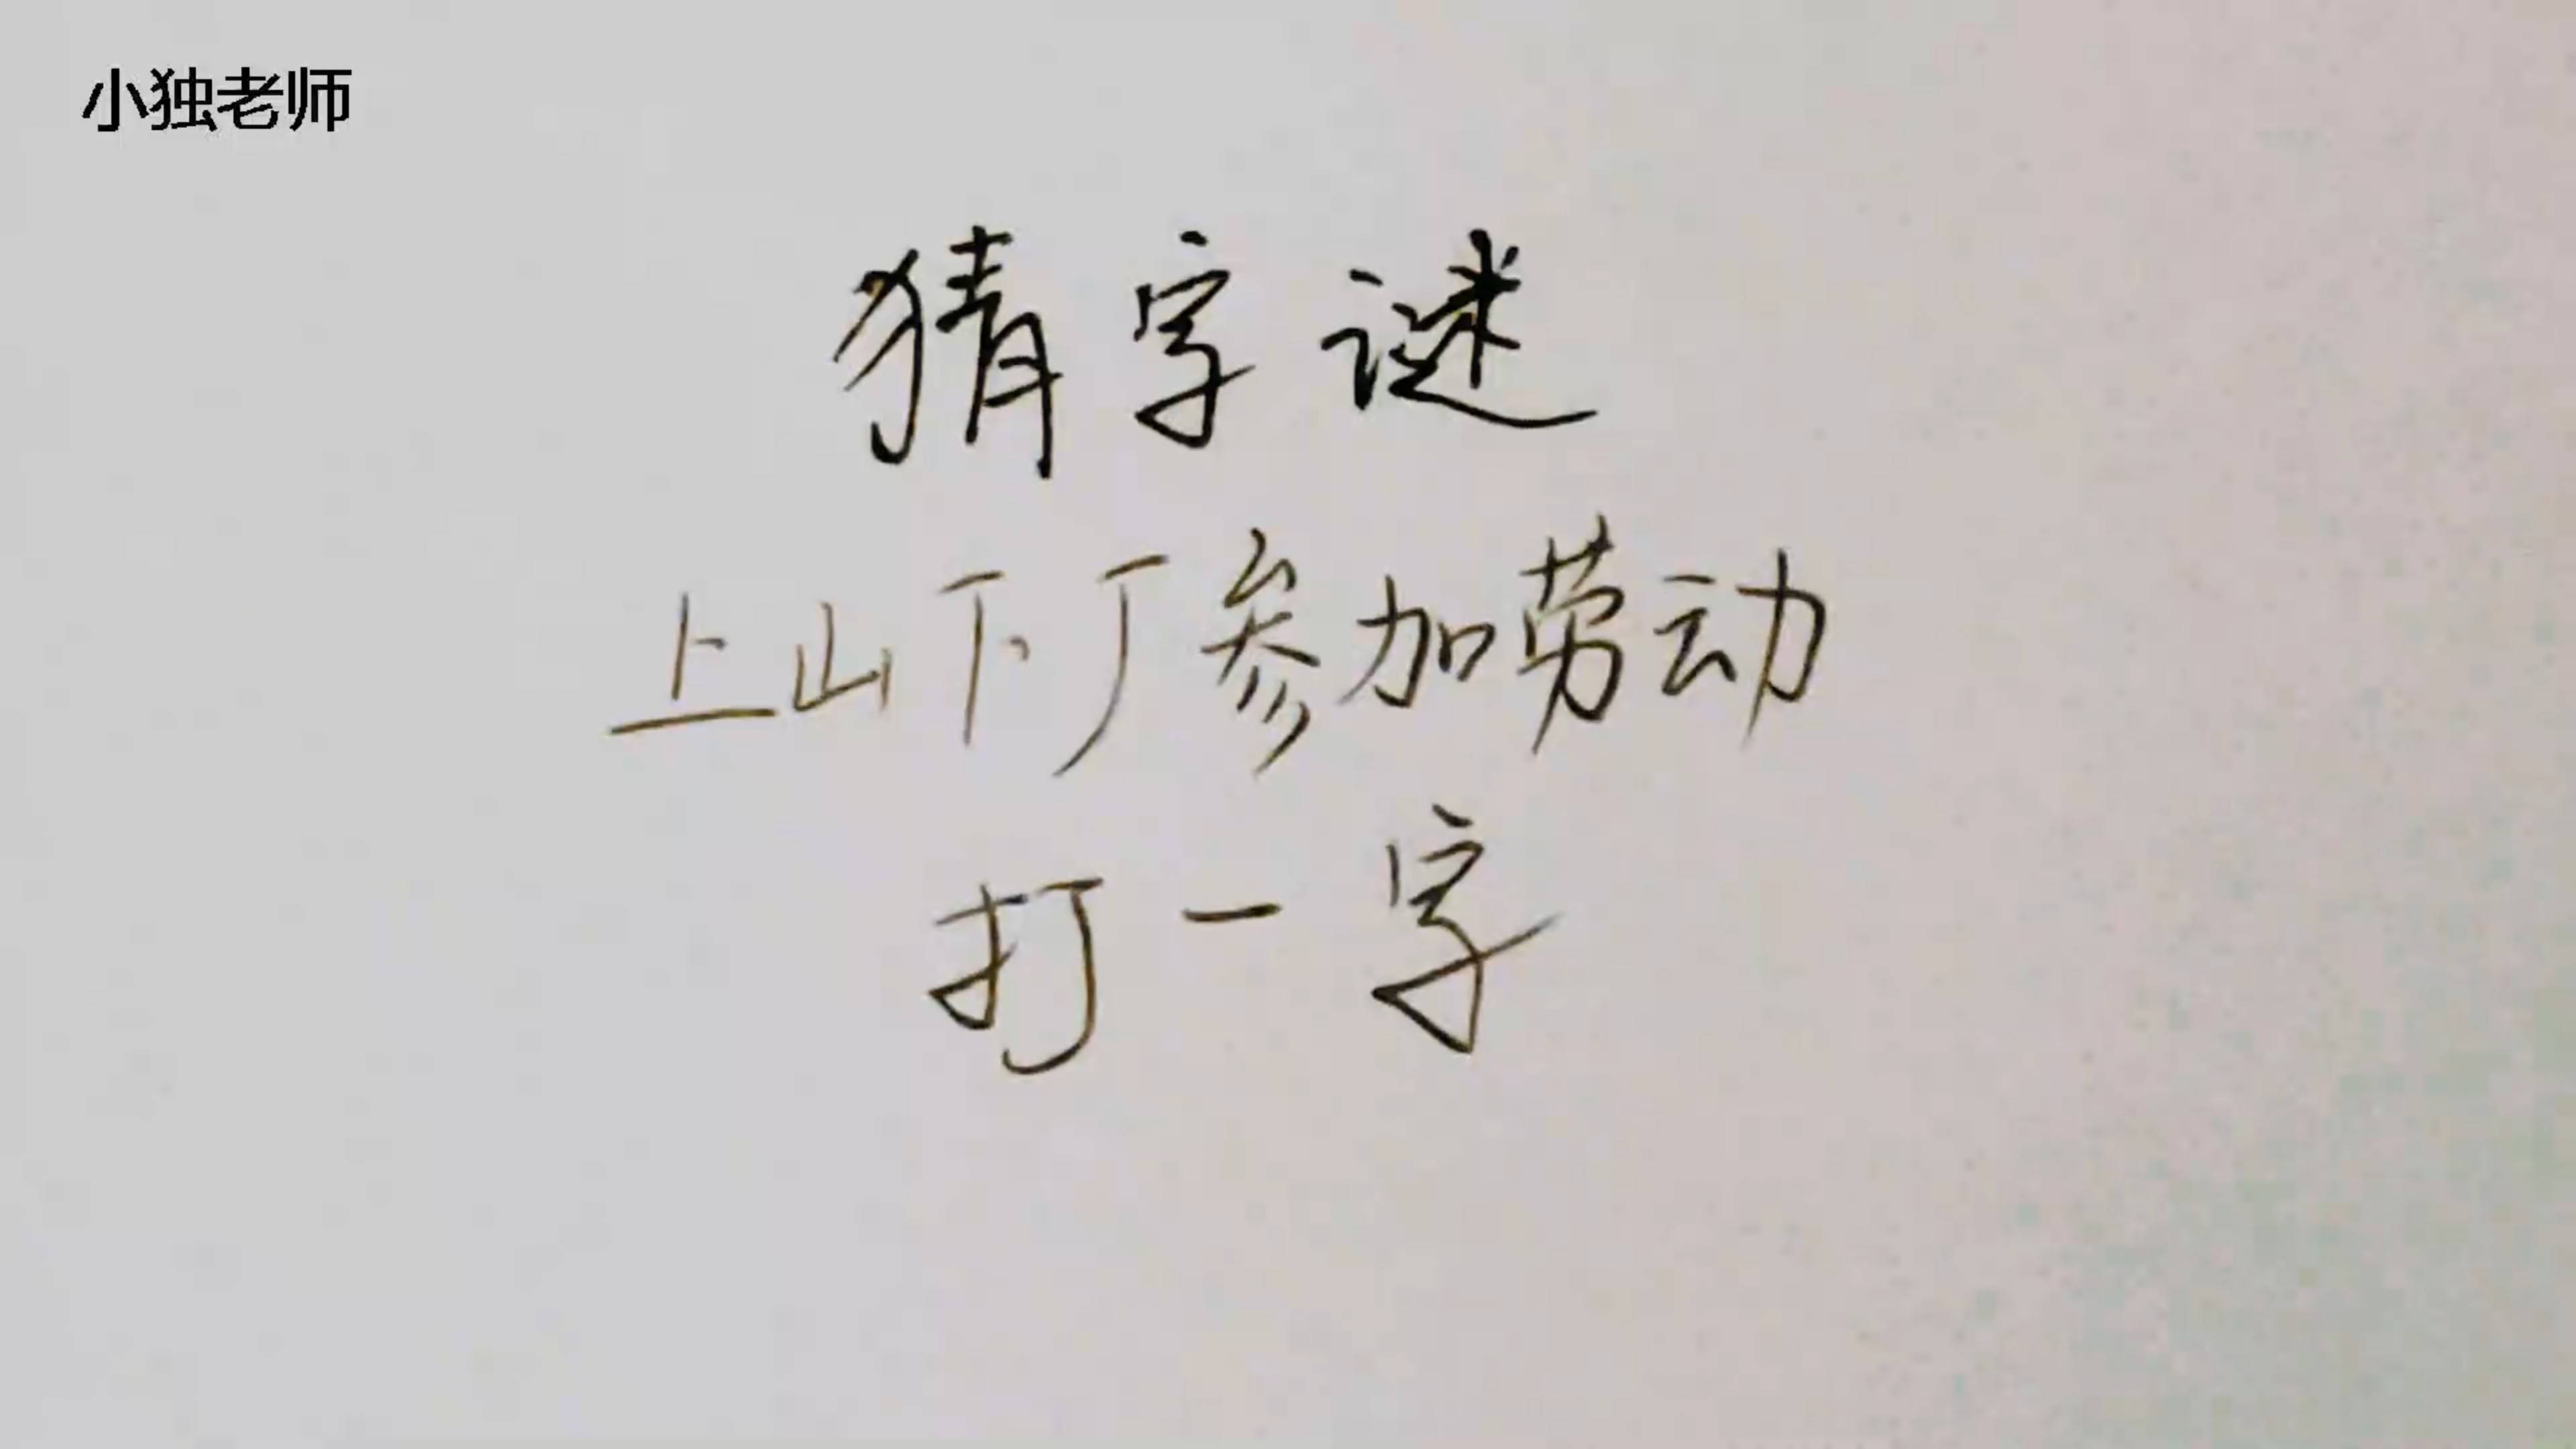 小独老师
猜字谜
上山下厂参加劳动
打一字